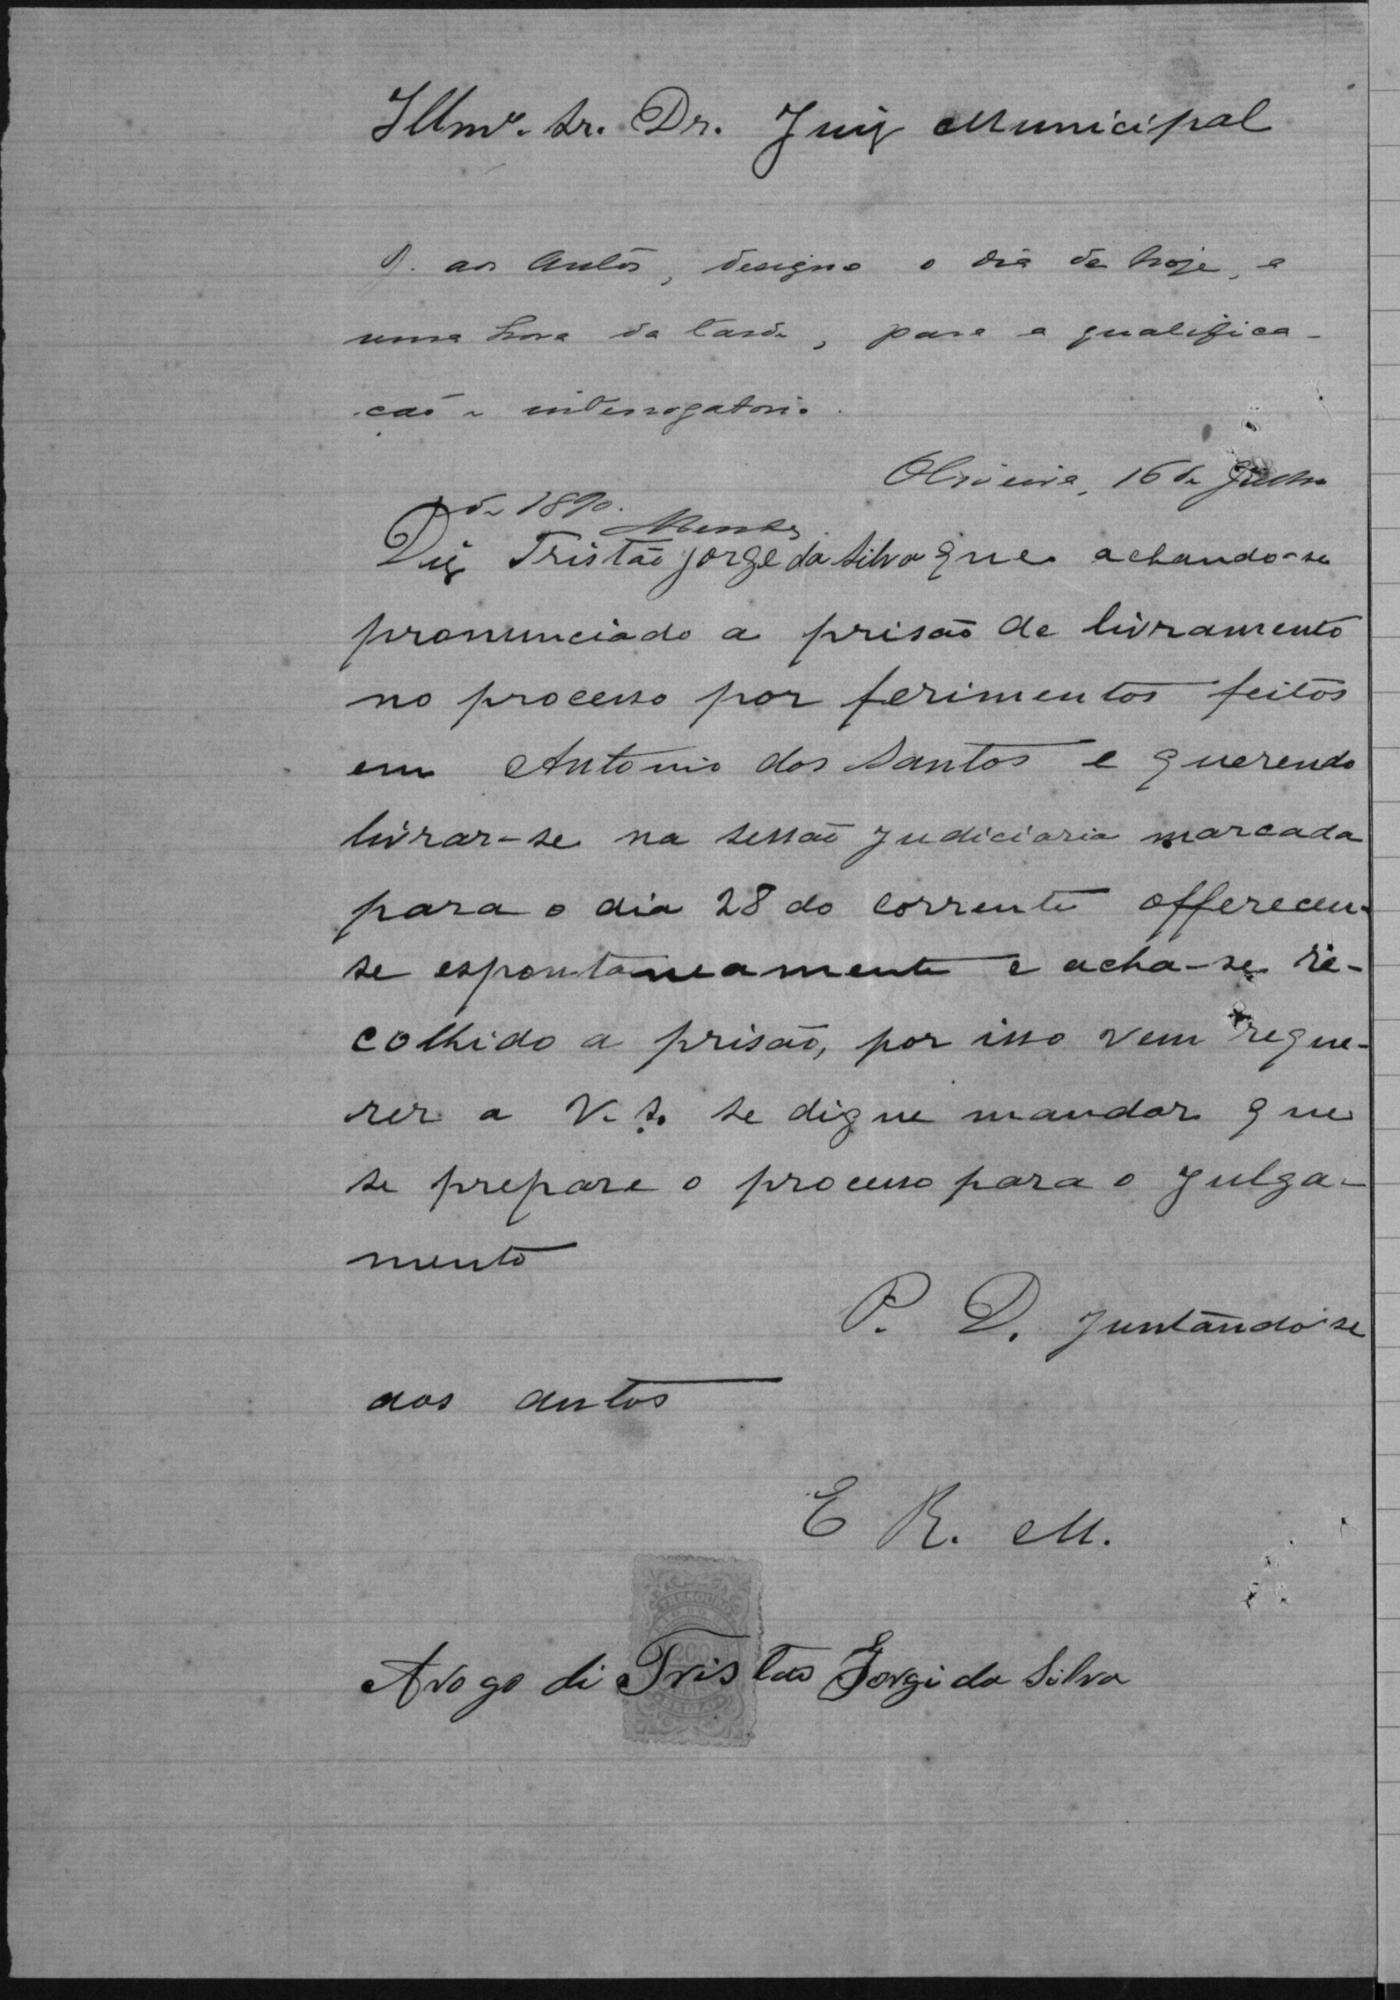 Illmº. Sr. Dr. Juiz Municipal
J. aos Autos, designo o dia de hoje, a
uma hora da tarde, para a qualifica-
ção e interrogatorio.
Oliveira, 16 de Julho
de 1890.
Mendes
Diz Tristão Jorge da Silva que achando-se
pronunciado a prisão de livramento
no processo por ferimentos feitos
em Antonio dos Santos e querendo
livrar-se na sessão judiciaria marcada
para o dia 28 do corrente offereceu-
se espontaneamente e acha-se re-
colhido a prisão, por isso vem reque-
rer a V. S. se digne mandar que
se prepare o processo para o julga-
mento
P. D. juntando-se
aos autos
E R. M.
Arogo di Tristão Jorgi da Silva
200